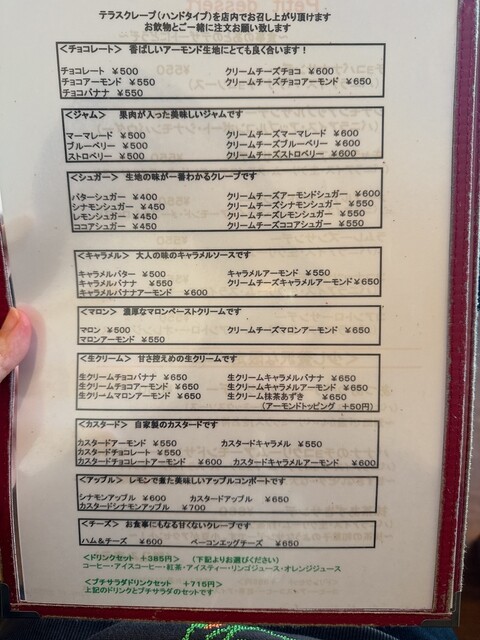 テラスクレープ(ハンドタイプ)を店内でお召し上がり頂けます
お飲物とご一緒に注文お願い致します
<チョコレート> 香ばしいアーモンド生地にとても良く合います!
チョコレート ¥500 クリームチーズチョコ ¥600
チョコアーモンド ¥550 クリームチーズチョコアーモンド ¥650
チョコバナナ ¥550
<ジャム> 果肉が入った美味しいジャムです
マーマレード ¥500 クリームチーズマーマレード ¥600
ブルーベリー ¥500 クリームチーズブルーベリー ¥600
ストロベリー ¥500 クリームチーズストロベリー ¥600
<シュガー> 生地の味が一番わかるクレープです
バターシュガー ¥400 クリームチーズアーモンドシュガー ¥600
シナモンシュガー ¥450 クリームチーズシナモンシュガー ¥550
レモンシュガー ¥450 クリームチーズレモンシュガー ¥550
ココアシュガー ¥450 クリームチーズココアシュガー ¥550
<キャラメル> 大人の味のキャラメルソースです
キャラメルバター ¥500 キャラメルアーモンド ¥550
キャラメルバナナ ¥550 クリームチーズキャラメルアーモンド ¥650
キャラメルバナナアーモンド ¥600
<マロン> 濃厚なマロンペーストクリームです
マロン ¥500 クリームチーズマロンアーモンド ¥650
マロンアーモンド ¥550
<生クリーム> 甘さ控えめの生クリームです
生クリームチョコバナナ ¥650 生クリームキャラメルバナナ ¥650
生クリームチョコアーモンド ¥650 生クリームキャラメルアーモンド ¥650
生クリームマロンアーモンド ¥650 生クリーム抹茶あずき ¥650
(アーモンドトッピング +50円)
<カスタード> 自家製のカスタードです
カスタードアーモンド ¥550 カスタードキャラメル ¥550
カスタードチョコレート ¥550
カスタードチョコレートアーモンド ¥600 カスタードキャラメルアーモンド ¥600
<アップル> レモンで煮た美味しいアップルコンポートです
シナモンアップル ¥600 カスタードアップル ¥650
カスタードシナモンアップル ¥700
<チーズ> お食事にもなる甘くないクレープです
ハム&チーズ ¥600 ベーコンエッグチーズ ¥650
<ドリンクセット +385円> (下記よりお選びください)
コーヒー・アイスコーヒー・紅茶・アイスティー・リンゴジュース・オレンジジュース
<プチサラダドリンクセット +715円>
上記のドリンクとプチサラダのセットです